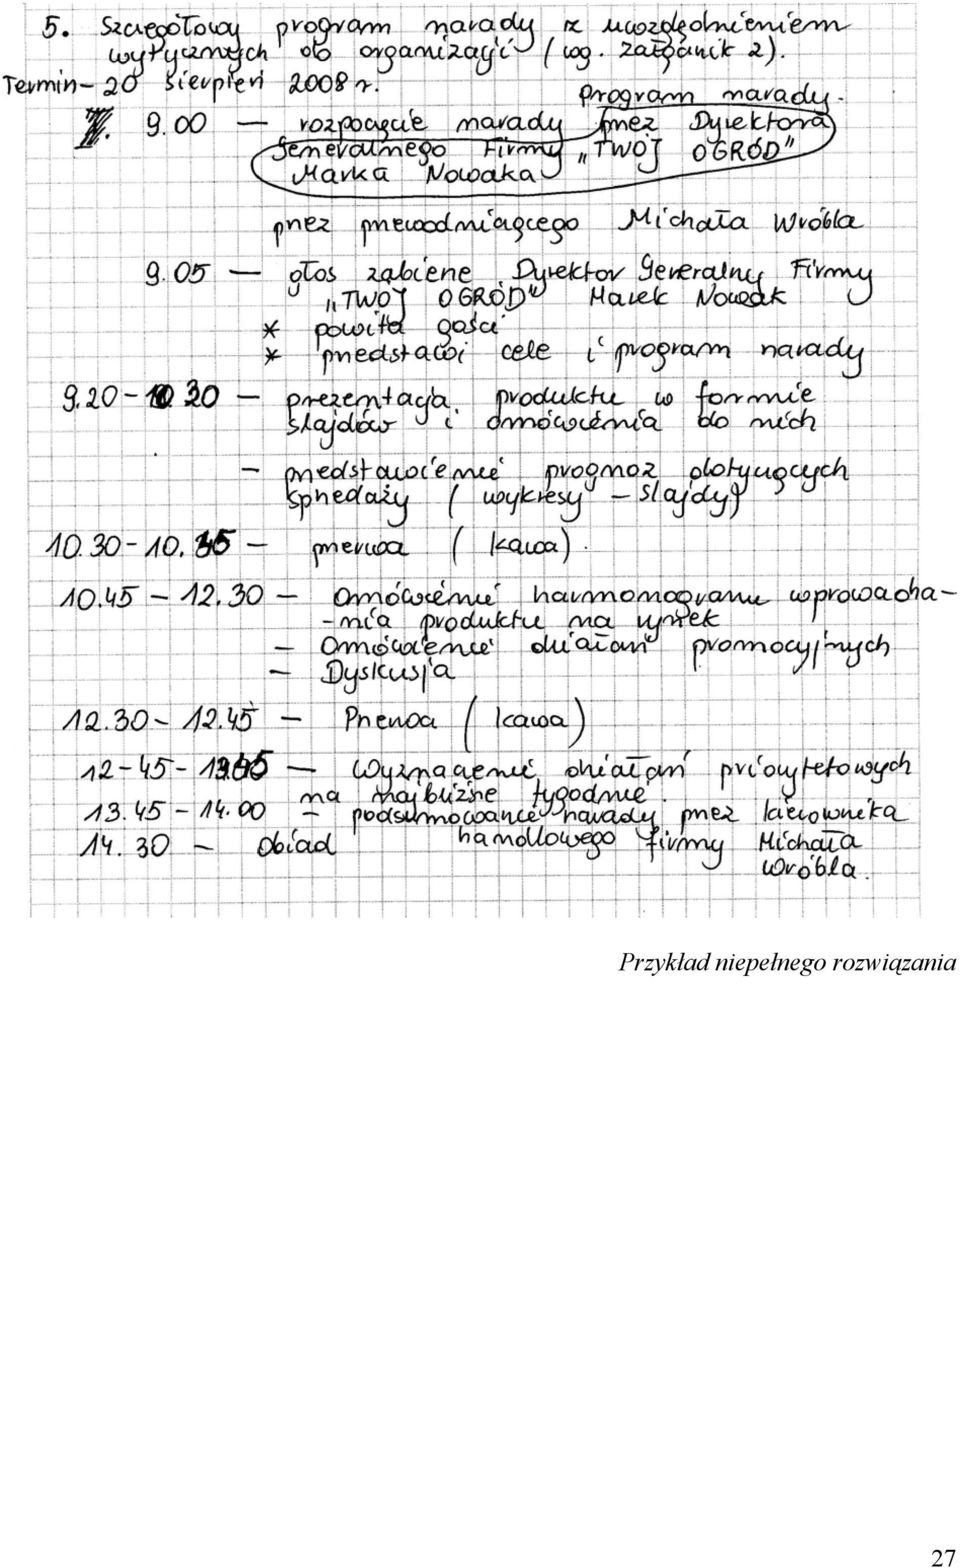 5. Szczegółowy program narady z uwzględnieniem
wytycznych do organizacji (wg. załącznik 2).
Termin - 20 sierpień 2008 r.
program narady.
I. 9.00 — rozpoczęcie narady przez Dyrektora
Generalnego Firmy „TWÓJ OGRÓD"
Marka Nowaka
przez przewodniczącego Michała Wróbla
9.05 — głos zabierze Dyrektor Generalny Firmy
„TWÓJ OGRÓD" Marek Nowak
* powita gości
* przedstawi cele i program narady
9.20 - 10.30 — prezentacja produktu w formie
slajdów i omówienia do nich
— przedstawienie prognoz dotyczących
sprzedaży (wykresy - slajdy)
10.30 - 10.45 — przerwa (kawa).
10.45 - 12.30 — Omówienie harmonogramu wprowadza-
-nia produktu na rynek
— Omówienie działań promocyjnych
— Dyskusja
12.30 - 12.45 — Przerwa (kawa)
12-45 - 13.45 — Wyznaczenie działań priorytetowych
na najbliższe tygodnie.
13.45 - 14.00 — podsumowanie narady przez kierownika
handlowego firmy Michała
Wróbla.
14.30 - Obiad
Przykład niepełnego rozwiązania
27